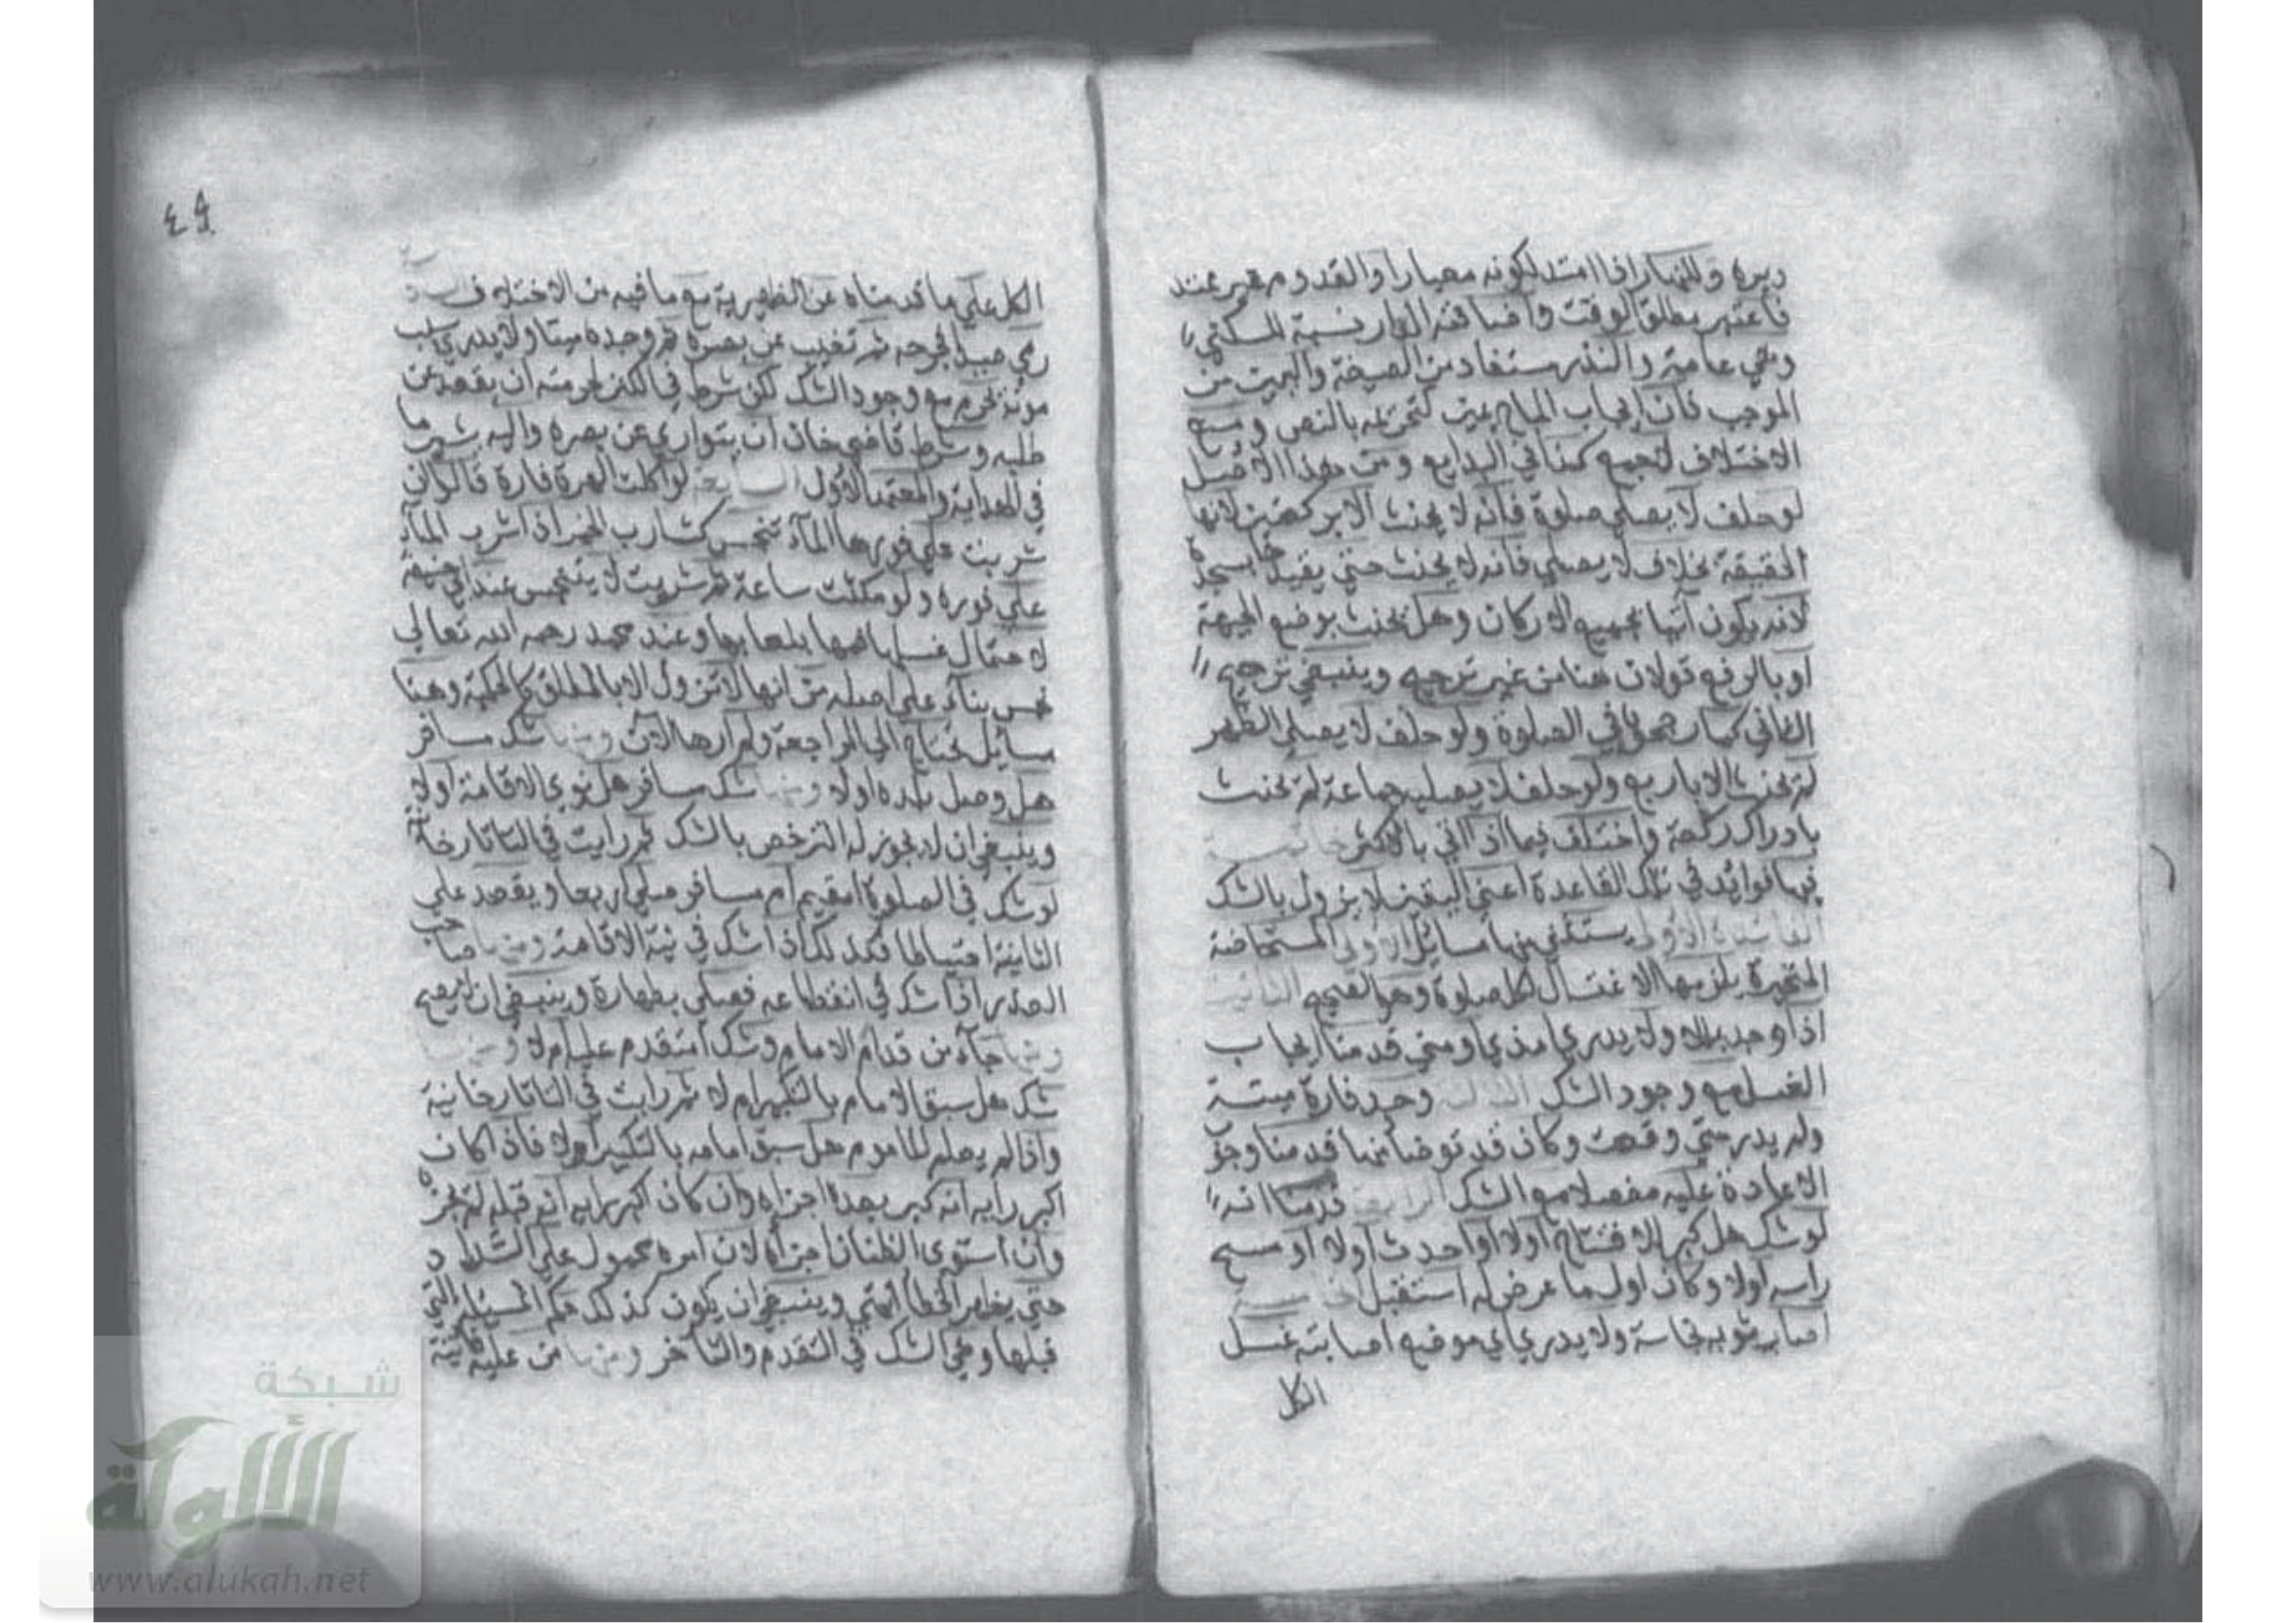 وبره وللنهار اذا امتد لكونه معيارا والقدوم غير ممتد
فاعتبر مطلق الوقت واضافة الدار نسبة للسكني
وهي عامة والنذر مستفاد من الصيغة واليمين من
الموجب فان ايجاب المباح يمين كتحريمه بالنص ومع
الاختلاف لا جمع كذا في البدايع ومن هذا الاصل
لو حلف لا يصلي صلوة فانه لا يحنث الا بركعتين لانها
الحقيقة بخلاف لا يصلي فانه لا يحنث حتي يقيدها بسجدة
لانه يكون آتيا بجميع الاركان وهل يحنث بوضع الجبهة
او بالرفع قولان هنا من غير ترجيح وينبغي ترجيح
الثاني كما رجحوه في الصلوة ولو حلف لا يصلي الظهر
لم يحنث الا باربع ولو حلف لا يصليه جماعة لم يحنث
بادراك ركعة واختلف فيما اذا اتي بالاكثر خاتمة
فيها فوائد في تلك القاعدة اعني اليقين لا يزول بالشك
الفائدة الاولي يستثني منها مسائل الاولي المستحاضة
المتحيرة يلزمها الاغتسال لكل صلوة وهو الصحيح الثانية
اذا وجد بللا ولا يدري امذي او مني قدمنا ايجاب
الغسل مع وجود الشك الثالثة وجد فارة ميتة
ولم يدر متي وقعت وكان قد توضأ منها قدمنا وجوب
الاعادة عليه مفصلا مع الشك الرابعة قدمنا انه
لو شك هل كبر للافتتاح اولا او احدث اولا او مسح
راسه اولا وكان اول ما عرض له استقبل الخامسة
اصاب ثوبه نجاسة ولا يدري اي موضع اصابته غسل
الكل
٤٩
الكل علي ما قدمناه عن الظهيرية مع ما فيه من الاختلاف السادسة
رمي صيدا فجرحه ثم تغيب عن بصره ثم وجده ميتا ولا يدري سبب
موته يحرم مع وجود الشك لكن شرط في الكنز لحرمته ان يقعد عن
طلبه وشرط قاضي خان ان يتواري عن بصره واليه يشير ما
في الهداية والمعتمد الاول السابعة لو اكلت الهرة فارة قالوا ان
شربت علي فورها الماء تنجس كشارب الخمر اذا شرب الماء
علي فوره ولو مكثت ساعة ثم شربت لا يتنجس عند ابي حنيفة
لاحتمال غسلها فمها بلعابها وعند محمد رحمه الله تعالي
نجس بناء علي اصله من انها لا تزول الا بالمطلق كالحكمية وهنا
مسائل تحتاج الي المراجعة ولم ارها الان ومنها شك مسافر
هل وصل بلده اولا ومنها شك مسافر هل نوي الاقامة اولا
وينبغي ان لا يجوز له الترخص بالشك ثم رايت في التاتارخانية
لو شك في الصلوة امقيم ام مسافر صلي اربعا ويقعد علي
الثانية احتياطا فكذلك اذا شك في نية الاقامة ومنها صاحب
العذر اذا شك في انقطاعه فصلي بطهارة وينبغي ان لا يصح
ومنها جاء من قدام الامام وشك امتقدم عليه ام لا ومنها
شك هل سبق الامام بالتكبير ام لا ثم رايت في التاتارخانية
واذا لم يعلم الماموم هل سبق امامه بالتكبير اولا فاذا كان
اكبر رايه انه كبر بعده اجزاه وان كان اكبر رايه انه قبله لم يجزه
وان استوي الظنان اجزأه لان امره محمول علي السداد
حتي يظهر الخطأ انتهي وينبغي ان يكون كذلك حكم المسئلة التي
قبلها وهي الشك في التقدم والتأخر ومنها من عليه فائتة
شبكة
الألوكة
www.alukah.net